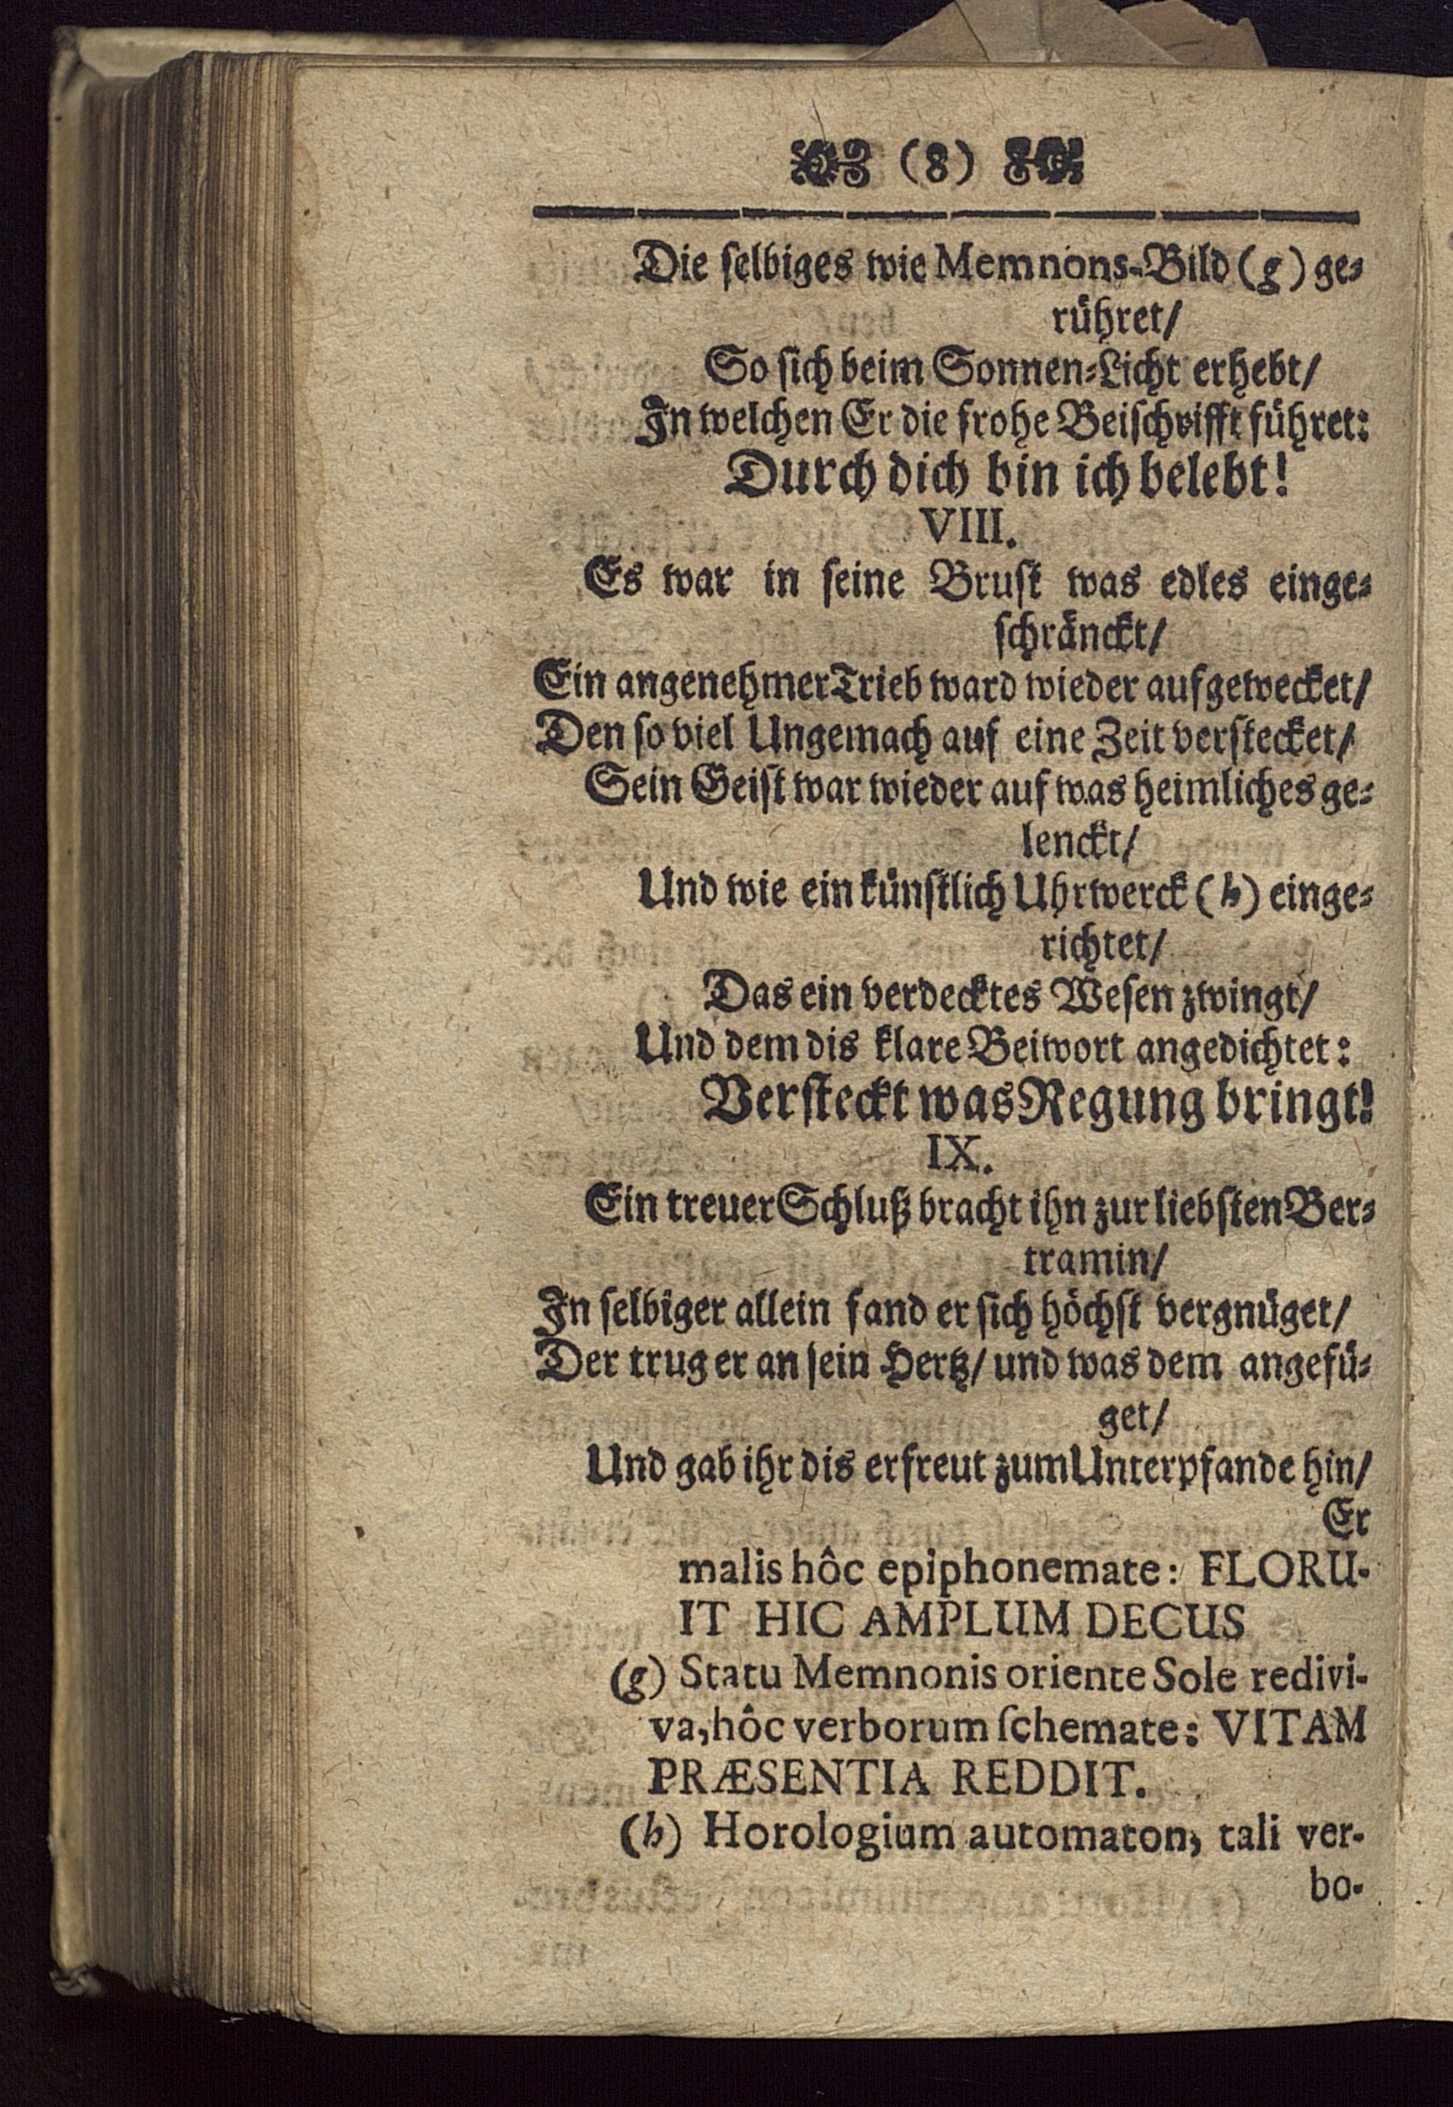 (8)
Die ſelbiges wie Memnons-Bild (g) ge-
rühret/
So ſich beim Sonnen-Licht erhebt/
In welchen Er die frohe Beiſchrifft führet:
Durch dich bin ich belebt!
VIII.
Es war in ſeine Bruſt was edles einge-
ſchränckt/
Ein angenehmer Trieb ward wieder aufgewecket/
Den ſo viel Ungemach auf eine Zeit verſtecket/
Sein Geiſt war wieder auf was heimliches ge-
lenckt/
Und wie ein künſtlich Uhrwerck (h) einge-
richtet/
Das ein verdecktes Weſen zwingt/
Und dem dis klare Beiwort angedichtet:
Verſteckt was Regung bringt!
IX.
Ein treuer Schluß bracht ihn zur liebſten Ber-
tramin/
In ſelbiger allein fand er ſich höchſt vergnüget/
Der trug er an ſein Hertz/ und was dem angefü-
get/
Und gab ihr dis erfreut zum Unterpfande hin/
Er
malis hôc epiphonemate: FLORU-
IT HIC AMPLUM DECUS
(g) Statu Memnonis oriente Sole redivi-
va, hôc verborum ſchemate: VITAM
PRÆSENTIA REDDIT.
(h) Horologium automaton, tali ver-
bo-